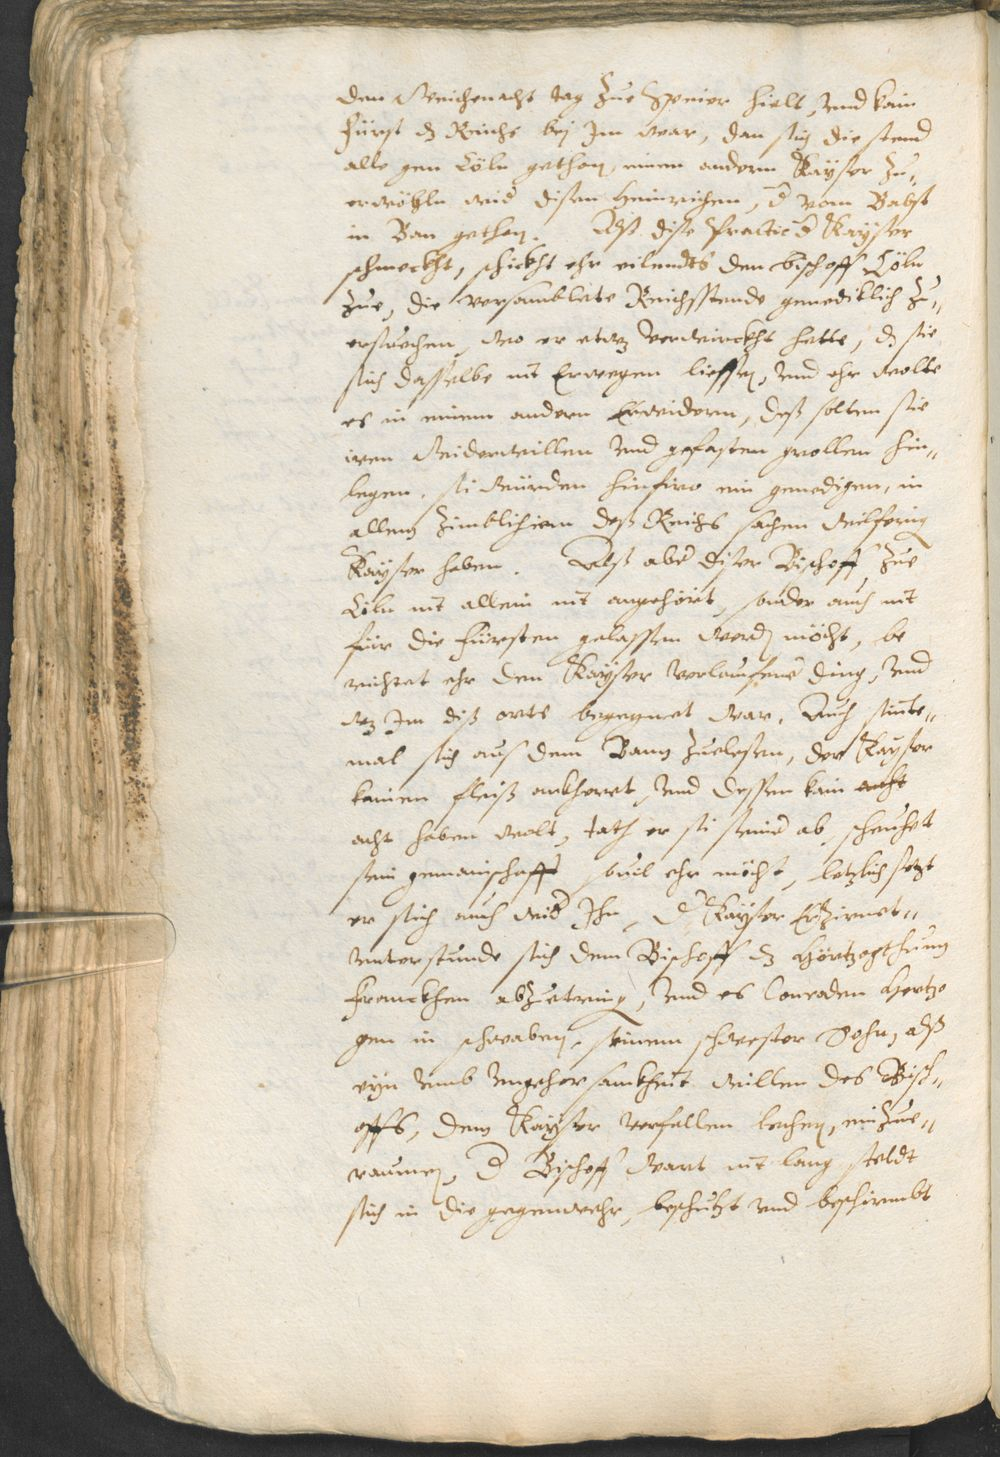 den Weichenacht tag zue Speier hielt, vnd kain
Fürst dz Reichs bej Im war, dan sich die stend
alle gen Cöln gethon, einen andern Kayser zu„
erwöhln wid disen Heinrichen, d vom Babst
in Ban gethon. Alß dise Practic d Kayser
schmeckht, schickht ehr eilendts den bischoff Cöln
zue, die versamblete Reichsstende genediklich zu„
ersuechen, wo er etwz verwirckht hette, dz sie
sich dasselbe nit Erwegen liessen, vnd ehr wolte
es in einem andern Erwidern, deß solten sie
iren Widerwillen vnd gefasten grollen hin„
legen. si würden hinfiro ein genedigen, in
allem zimblichem deß Reichs sachen wilferig
Kayser haben. Alß aber diser Bischoff zue
Cöln nit allein nit angehört, sonder auch nit
für die Fürsten gelassen werden möcht, be
richtet ehr dem Kayser verlaufene ding, vnd
wz Im diß orts begegnet war. Auch sinte„
mal sich aus dem Bann zuelesen, der Kayser
kainen fleiß ankheret, vnd dessen kain acht
acht haben wolt, tath er si seind ab, scheuhet
sein gemainschafft souil ehr möcht, letzlich setzt
er sich auch wid Ihn, d Kayser Erzirnet„
vnterstunde sich dem Bischoff dz Hörtzogthumb
Franckhen abzuetring, vnd es Conraden Hertzo
gen in schwaben, seinem schwester Sohn, alß
eyn vmb vngehorsamkheit willen des Bisch„
offs, dem Kayser verfallen lechen, einzue„
raumen, d Bischoff wart nit lang steldt
sich in die gegenwehr, beschutzt vnd beschirmbt